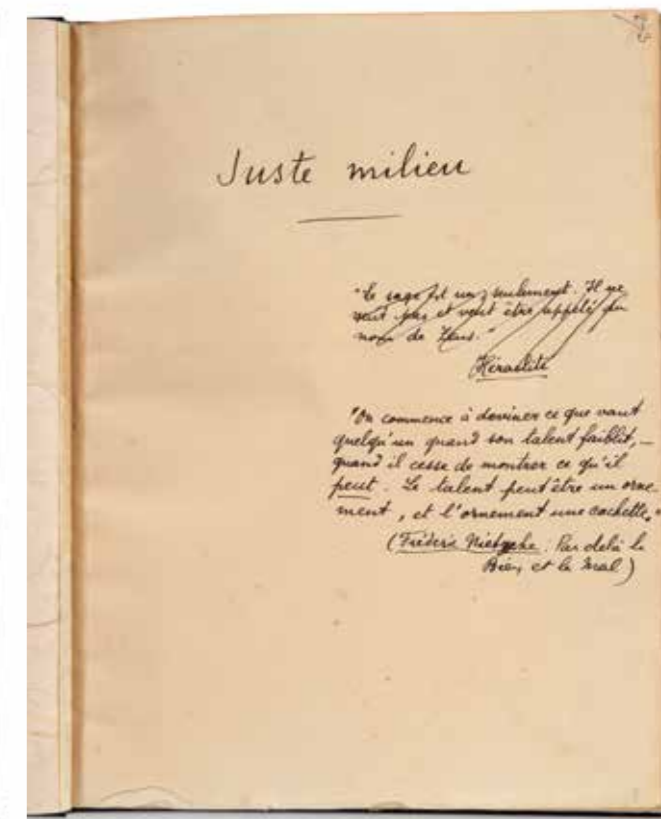 Juste milieu
"Le sage est un seulement. Il ne
veut pas et veut être appelé du
nom de Zeus."
Héraclite
"On commence à deviner ce que vaut
quelqu'un quand son talent faiblit, —
quand il cesse de montrer ce qu'il
peut. Le talent peut être un orne-
ment, et l'ornement une cachette."
(Frédéric Nietzsche : Par delà le
Bien et le Mal)